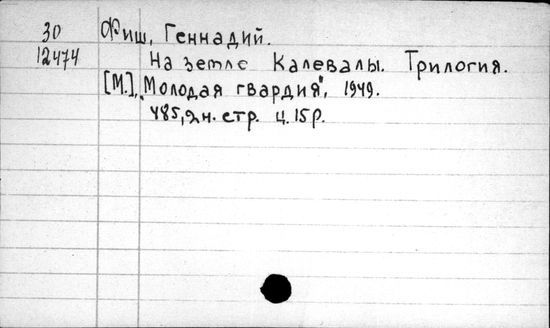 30 Фиш, Геннадий.
12474 На земле Калевалы. Трилогия.
[М.], "Молодая гвардия", 1949.
485, 2 н. стр. ц. 15 р.